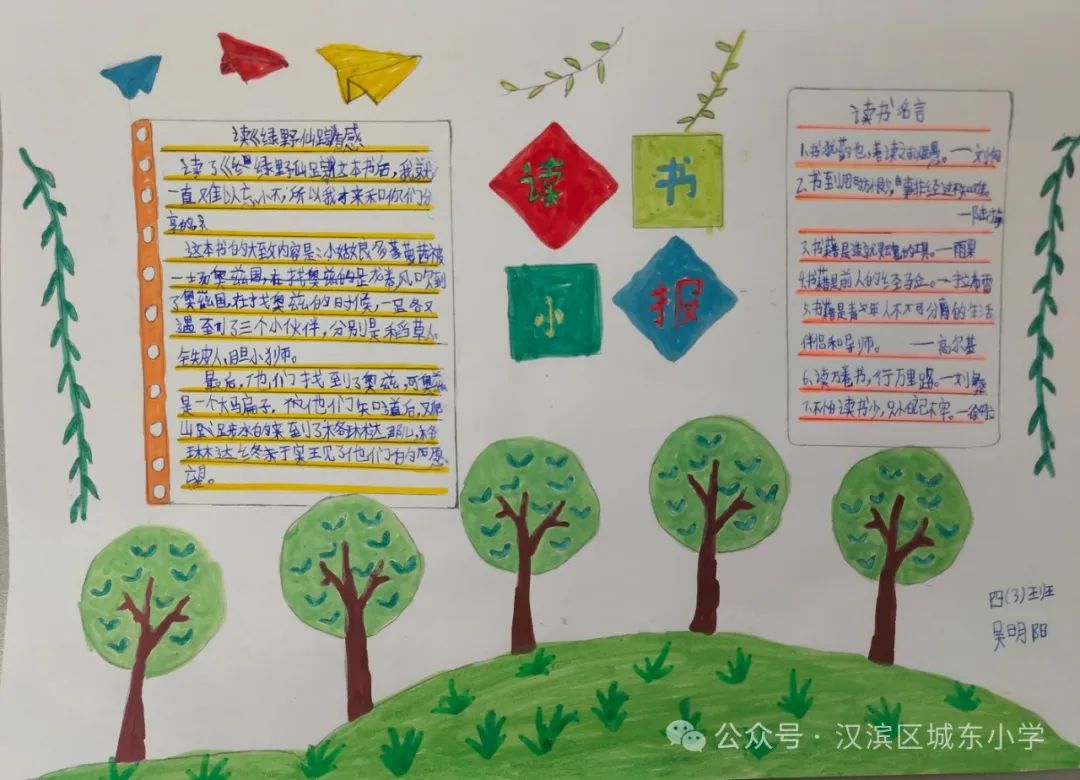 读《绿野仙踪》有感
读了《绿野仙踪》这本书后,我就
一直难以忘怀,所以我才来和你们分
享的。
这本书的大致内容是:小姑娘多萝茜被
一场奥兹国,在找奥兹的是龙卷风吹到
了奥兹国,在寻找奥兹的时候,一路各又
遇到了三个小伙伴,分别是稻草人、
铁皮人、胆小狮。
最后,他们找到了奥兹,可奥兹
是一个大骗子,被他们知道后,又
山 的来到了
琳达 于实现了他们的愿
望。
读 书
小 报
读书名言
1.书犹药也,善读之可以医愚。—刘向
2.书到用时方恨少,事非经过不知难。
—陆游
3.书籍是造就灵魂的工具。—雨果
4.书籍是前人的经验。—拉布雷
5.书籍是青少年人不可分离的生活
伴侣和导师。 —高尔基
6.读万卷书,行万里路。—刘彝
7.不怕读书少,只怕记不牢。—徐特立
四(3)班
吴明阳
公众号·汉滨区城东小学